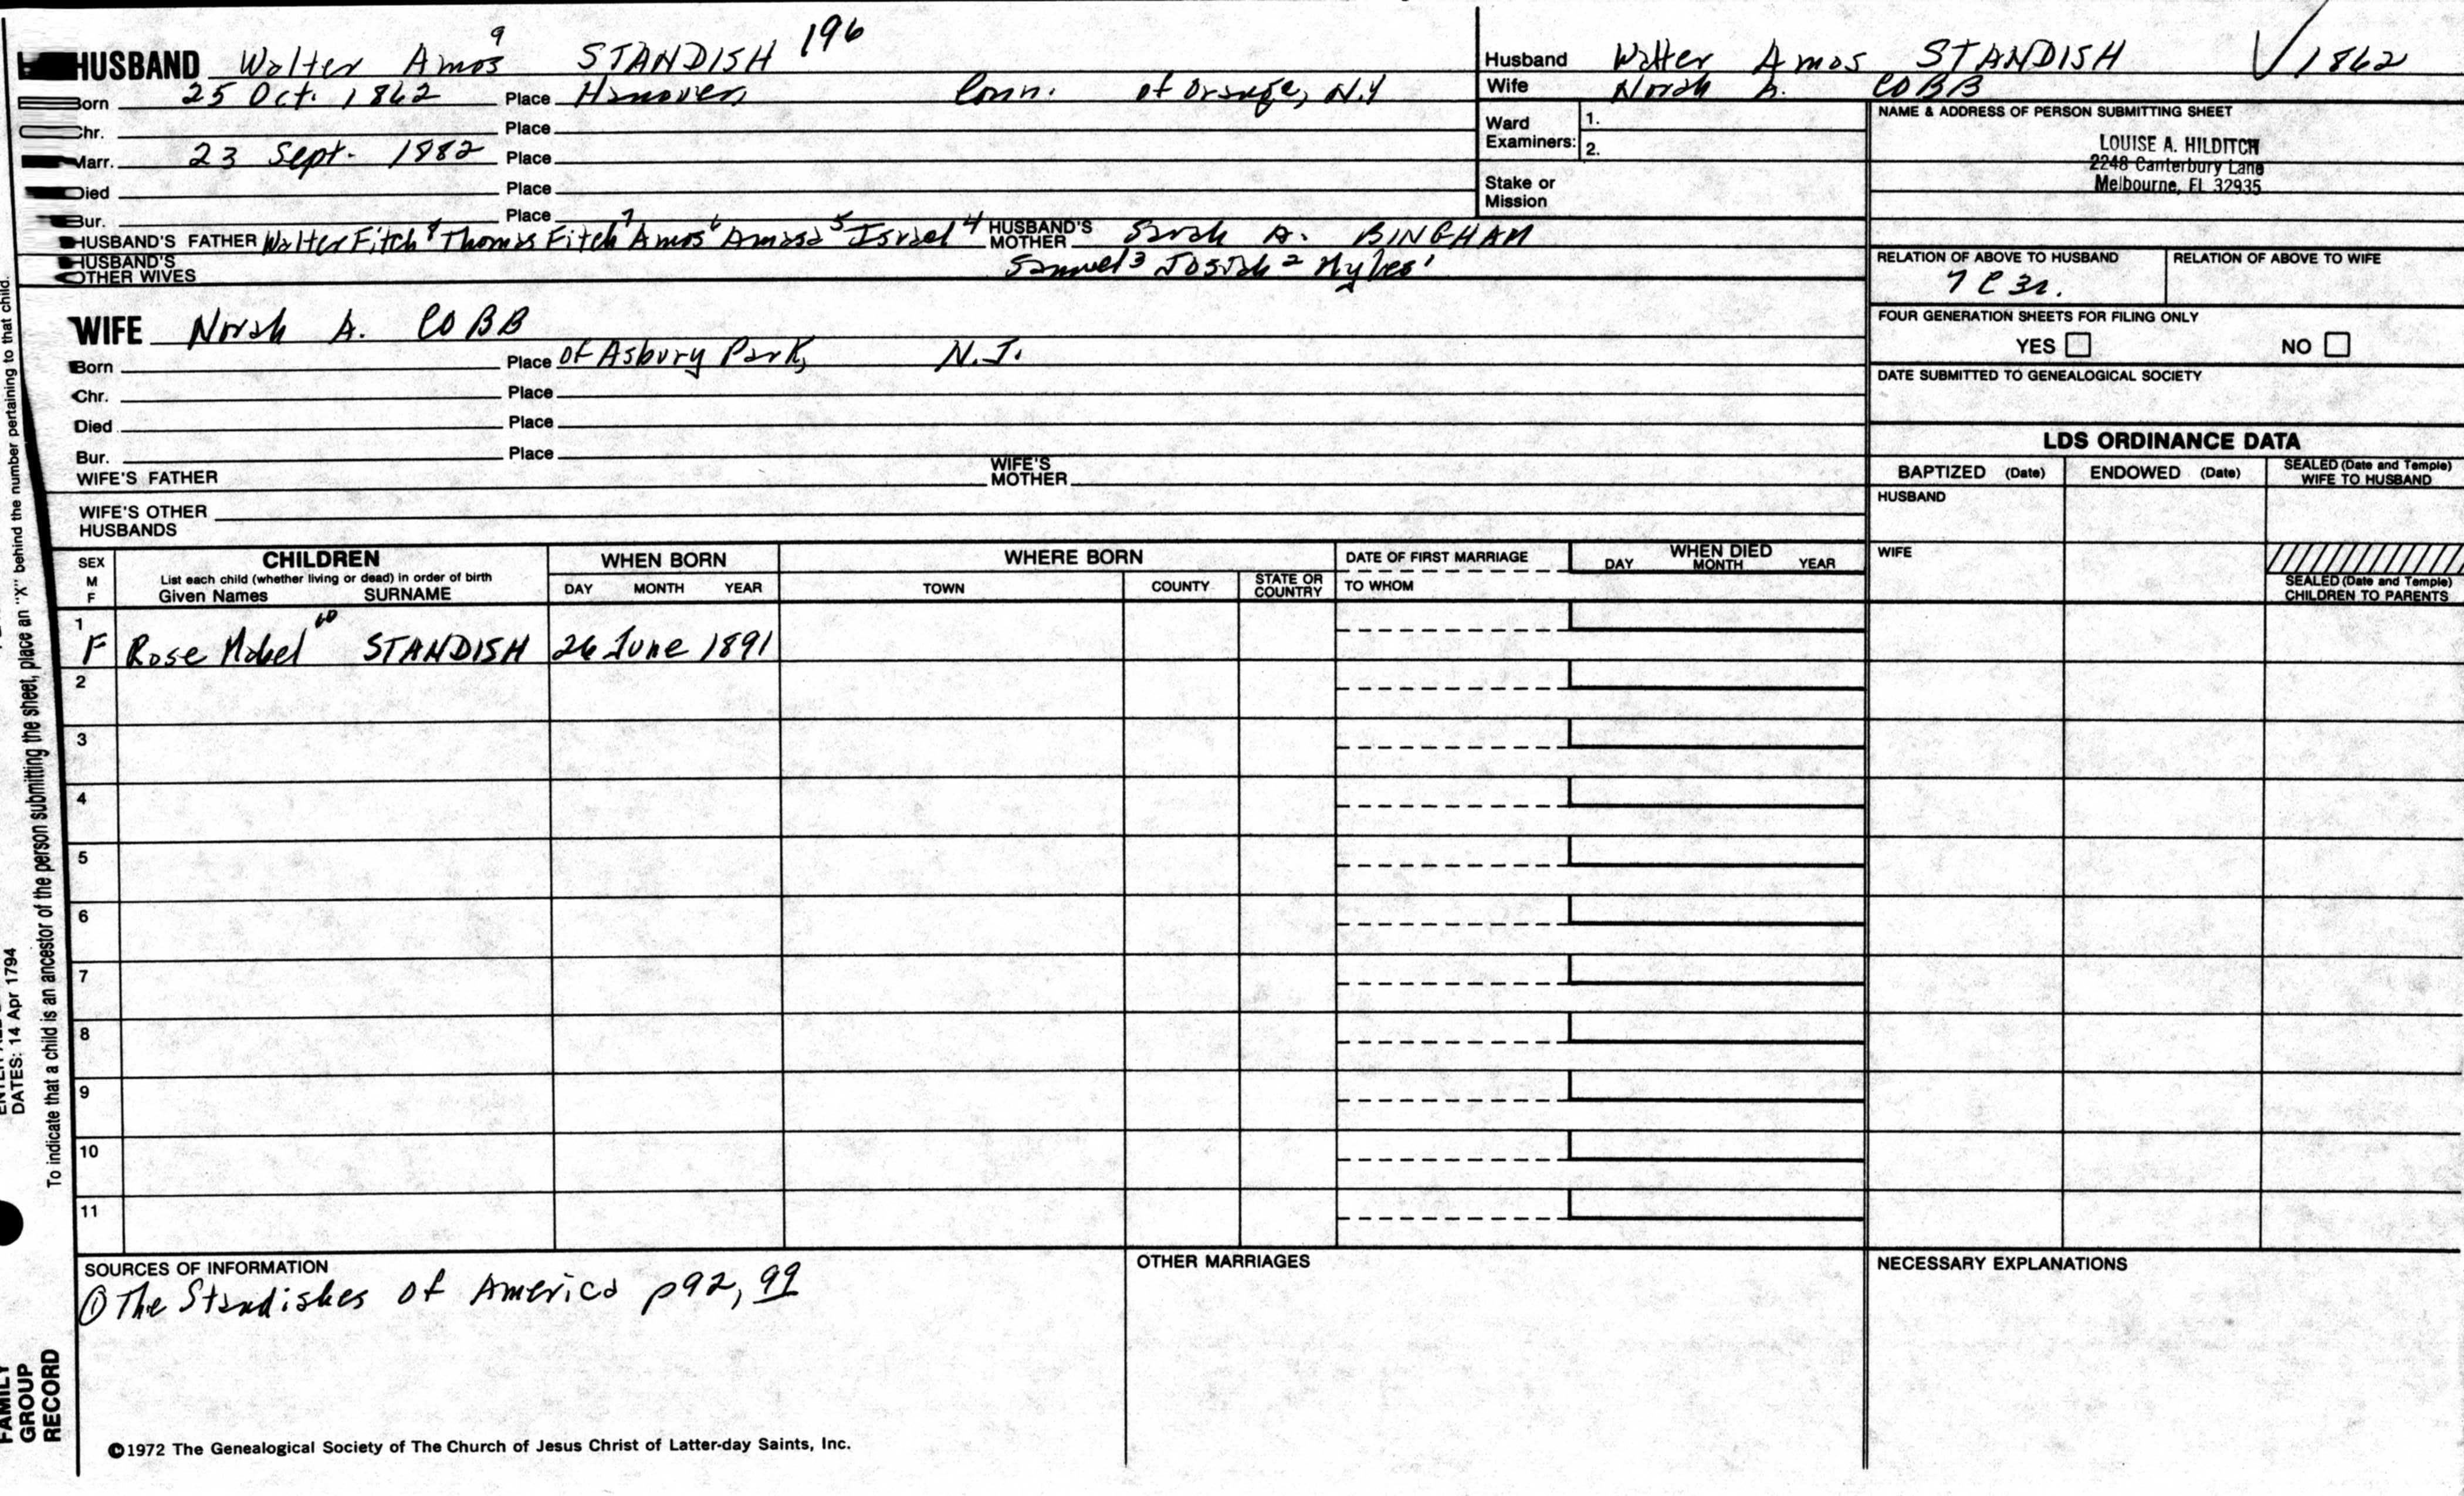 HUSBAND Walter Amos 9 STANDISH 196
Born 25 Oct. 1862 Place Hanover, Conn. of Orange, N.Y
Chr. Place
Marr. 23 Sept. 1882 Place
Died Place
Bur. Place
HUSBAND'S FATHER Walter Fitch 8 Thomas Fitch 7 Amos 6 Amasa 5 Israel 4 HUSBAND'S MOTHER Sarah A. BINGHAM
HUSBAND'S OTHER WIVES Samuel 3 Josiah 2 Myles 1
WIFE Norah A. COBB
Born Place of Asbury Park, N.J.
Chr. Place
Died Place
Bur. Place
WIFE'S FATHER WIFE'S MOTHER
WIFE'S OTHER HUSBANDS
Husband Walter Amos STANDISH √ 1862
Wife Norah A. COBB
Ward Examiners: 1.
2.
Stake or Mission
NAME & ADDRESS OF PERSON SUBMITTING SHEET
LOUISE A. HILDITCH
2248 Canterbury Lane
Melbourne, FL 32935
RELATION OF ABOVE TO HUSBAND RELATION OF ABOVE TO WIFE
7 C 3r.
FOUR GENERATION SHEETS FOR FILING ONLY
YES NO
DATE SUBMITTED TO GENEALOGICAL SOCIETY
LDS ORDINANCE DATA
BAPTIZED (Date) ENDOWED (Date) SEALED (Date and Temple) WIFE TO HUSBAND
HUSBAND
WIFE
SEALED (Date and Temple) CHILDREN TO PARENTS
SEX M F CHILDREN WHEN BORN WHERE BORN DATE OF FIRST MARRIAGE WHEN DIED
List each child (whether living or dead) in order of birth
Given Names SURNAME DAY MONTH YEAR TOWN COUNTY STATE OR COUNTRY TO WHOM DAY MONTH YEAR
1
F Rose Mabel 10 STANDISH 26 June 1891
2
3
4
5
6
7
8
9
10
11
SOURCES OF INFORMATION OTHER MARRIAGES NECESSARY EXPLANATIONS
① The Standishes of America p92, 99
©1972 The Genealogical Society of The Church of Jesus Christ of Latter-day Saints, Inc.
To indicate that a child is an ancestor of the person submitting the sheet, place an "X" behind the number pertaining to that child.
DATES: 14 Apr 1794
FAMILY GROUP RECORD